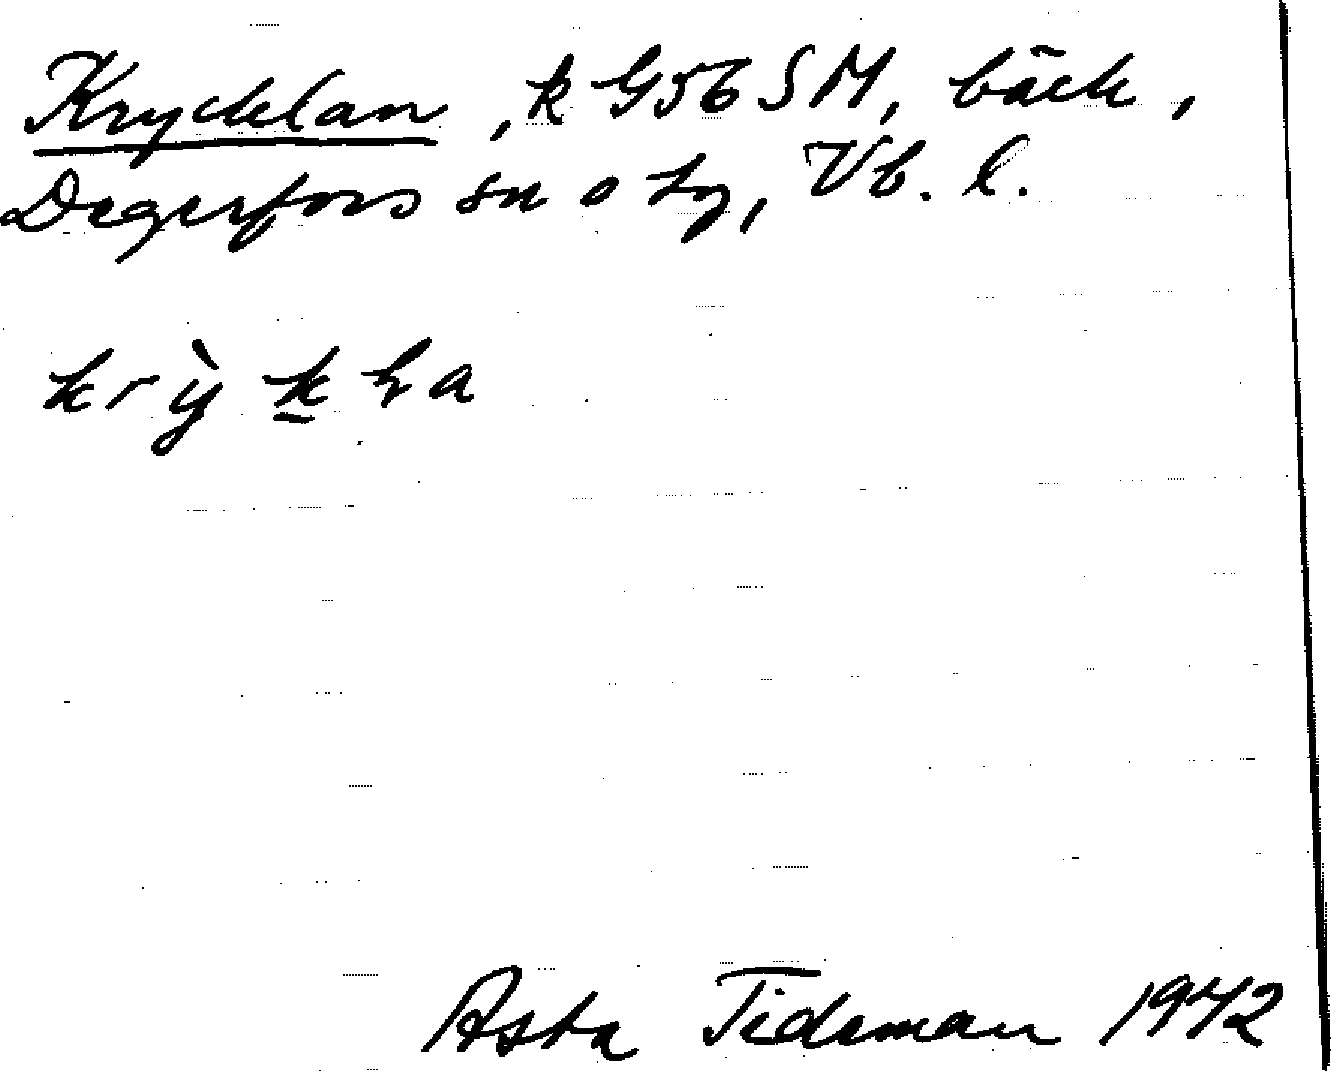 Krycklan, k G56 SM, bäck,
Degerfors sn o tg, Vb. l.
krỳk̲ła
Asta Tideman 1942